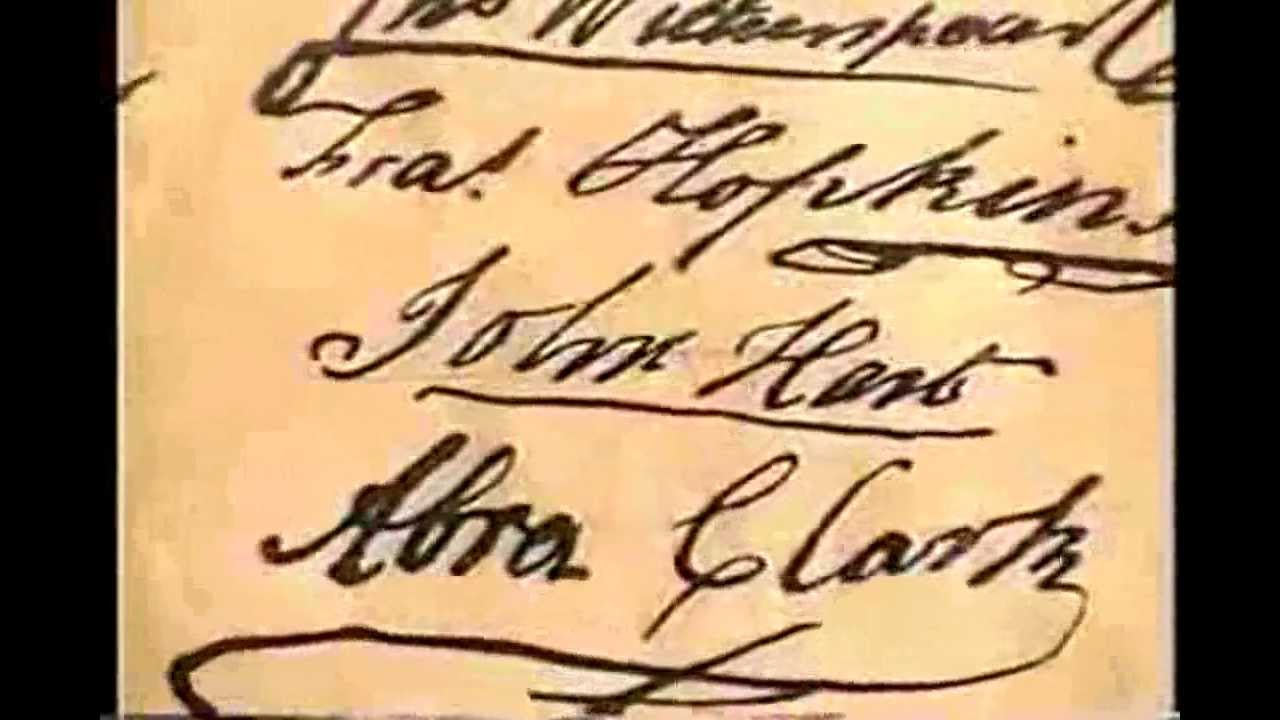 Jno Witherspoon
Fras. Hopkins
John Hart
Abra Clark